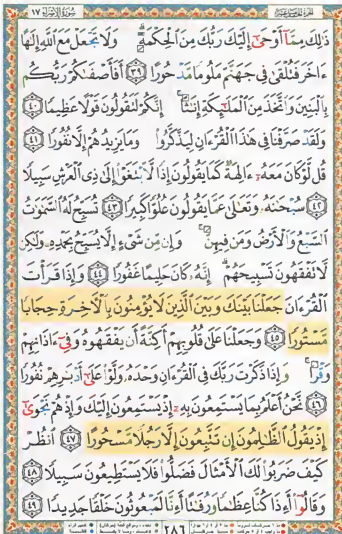 الجزء الخامس عشر سورة الإسراء ١٧
ذَٰلِكَ مِمَّآ أَوۡحَىٰٓ إِلَيۡكَ رَبُّكَ مِنَ ٱلۡحِكۡمَةِۗ وَلَا تَجۡعَلۡ مَعَ ٱللَّهِ إِلَٰهًا
ءَاخَرَ فَتُلۡقَىٰ فِي جَهَنَّمَ مَلُومٗا مَّدۡحُورًا ٣٩ أَفَأَصۡفَىٰكُمۡ رَبُّكُم
بِٱلۡبَنِينَ وَٱتَّخَذَ مِنَ ٱلۡمَلَٰٓئِكَةِ إِنَٰثًاۚ إِنَّكُمۡ لَتَقُولُونَ قَوۡلًا عَظِيمٗا ٤٠
وَلَقَدۡ صَرَّفۡنَا فِي هَٰذَا ٱلۡقُرۡءَانِ لِيَذَّكَّرُواْ وَمَا يَزِيدُهُمۡ إِلَّا نُفُورٗا ٤١
قُل لَّوۡ كَانَ مَعَهُۥٓ ءَالِهَةٞ كَمَا يَقُولُونَ إِذٗا لَّٱبۡتَغَوۡاْ إِلَىٰ ذِي ٱلۡعَرۡشِ سَبِيلٗا
٤٢ سُبۡحَٰنَهُۥ وَتَعَٰلَىٰ عَمَّا يَقُولُونَ عُلُوّٗا كَبِيرٗا ٤٣ تُسَبِّحُ لَهُ ٱلسَّمَٰوَٰتُ
ٱلسَّبۡعُ وَٱلۡأَرۡضُ وَمَن فِيهِنَّۚ وَإِن مِّن شَيۡءٍ إِلَّا يُسَبِّحُ بِحَمۡدِهِۦ وَلَٰكِن
لَّا تَفۡقَهُونَ تَسۡبِيحَهُمۡۚ إِنَّهُۥ كَانَ حَلِيمًا غَفُورٗا ٤٤ وَإِذَا قَرَأۡتَ
ٱلۡقُرۡءَانَ جَعَلۡنَا بَيۡنَكَ وَبَيۡنَ ٱلَّذِينَ لَا يُؤۡمِنُونَ بِٱلۡأٓخِرَةِ حِجَابٗا
مَّسۡتُورٗا ٤٥ وَجَعَلۡنَا عَلَىٰ قُلُوبِهِمۡ أَكِنَّةً أَن يَفۡقَهُوهُ وَفِيٓ ءَاذَانِهِمۡ
وَقۡرٗاۚ وَإِذَا ذَكَرۡتَ رَبَّكَ فِي ٱلۡقُرۡءَانِ وَحۡدَهُۥ وَلَّوۡاْ عَلَىٰٓ أَدۡبَٰرِهِمۡ نُفُورٗا
٤٦ نَّحۡنُ أَعۡلَمُ بِمَا يَسۡتَمِعُونَ بِهِۦٓ إِذۡ يَسۡتَمِعُونَ إِلَيۡكَ وَإِذۡ هُمۡ نَجۡوَىٰٓ
إِذۡ يَقُولُ ٱلظَّٰلِمُونَ إِن تَتَّبِعُونَ إِلَّا رَجُلٗا مَّسۡحُورًا ٤٧ ٱنظُرۡ
كَيۡفَ ضَرَبُواْ لَكَ ٱلۡأَمۡثَالَ فَضَلُّواْ فَلَا يَسۡتَطِيعُونَ سَبِيلٗا ٤٨
وَقَالُوٓاْ أَءِذَا كُنَّا عِظَٰمٗا وَرُفَٰتًا أَءِنَّا لَمَبۡعُوثُونَ خَلۡقٗا جَدِيدٗا ٤٩
٢٨٦